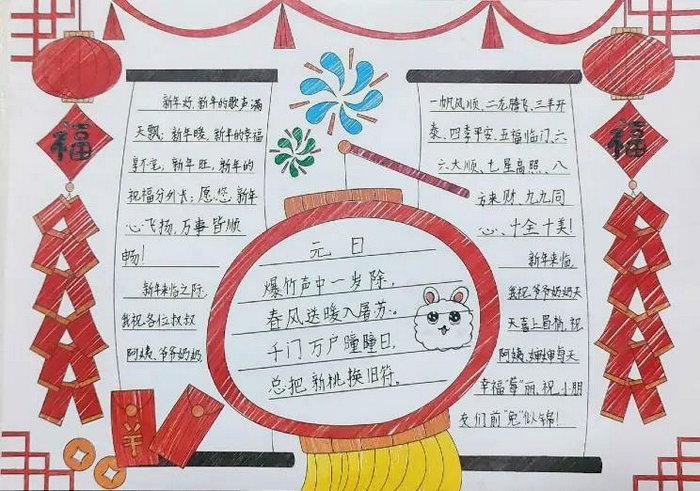 福
新年好,新年的歌声满
天飘;新年暖,新年的幸福
享不完,新年旺,新年的
祝福分外长;愿您,新年
心飞扬,万事皆顺
畅!
新年来临之际,
我祝各位叔叔
阿姨、爷爷奶奶
元日
爆竹声中一岁除,
春风送暖入屠苏。
千门万户曈曈日,
总把新桃换旧符。
一帆风顺、二龙腾飞、三羊开
泰、四季平安、五福临门、六
六大顺、七星高照、八
方来财、九九同
心、十全十美!
新年来临,
我祝爷爷奶奶天
天喜上眉梢,祝
阿姨、婶婶每天
幸福"莓"丽,祝小朋
友们前"兔"似锦!
福
羊